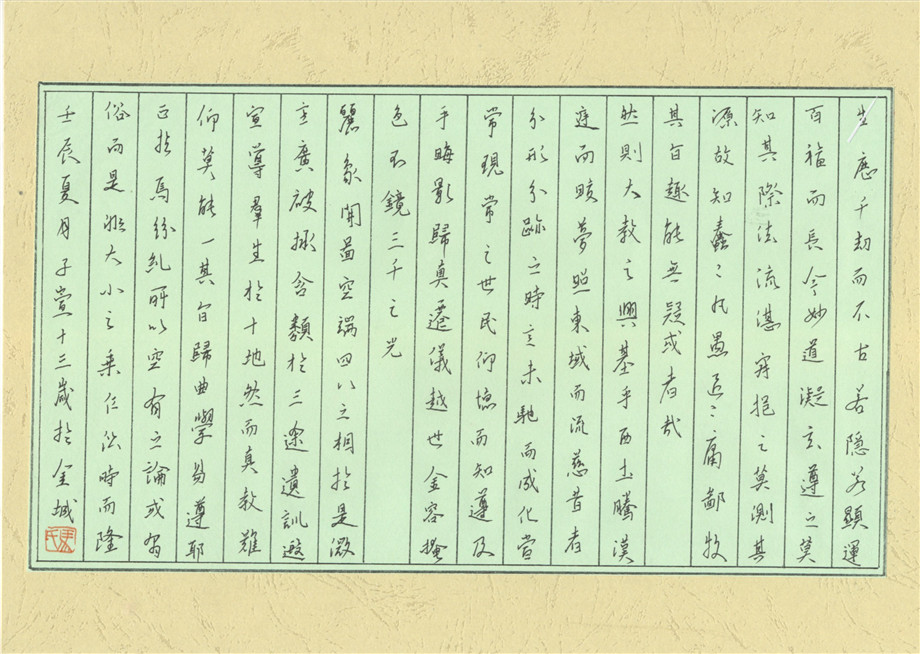 生應千劫而不古若隱若顯運
百福而長今妙道凝玄遵之莫
知其際法流湛寂挹之莫測其
源故知蠢々凡愚區々庸鄙投
其旨趣能无疑或者哉
然則大教之興基乎西土騰漢
庭而皎夢照東域而流慈昔者
分形分跡之時言未馳而成化當
常現常之世民仰德而知遵及
乎晦影歸真遷儀越世金容掩
色不鏡三千之光
麗象開圖空端四八之相於是微
言廣被拯含類於三途遺訓遐
宣導羣生於十地然而真教難
仰莫能一其旨歸曲學易遵邪
正於焉紛糺所以空有之論或習
俗而是非大小之乘乍沿時而隆
壬辰夏月子萱十三歲於金城
馬氏